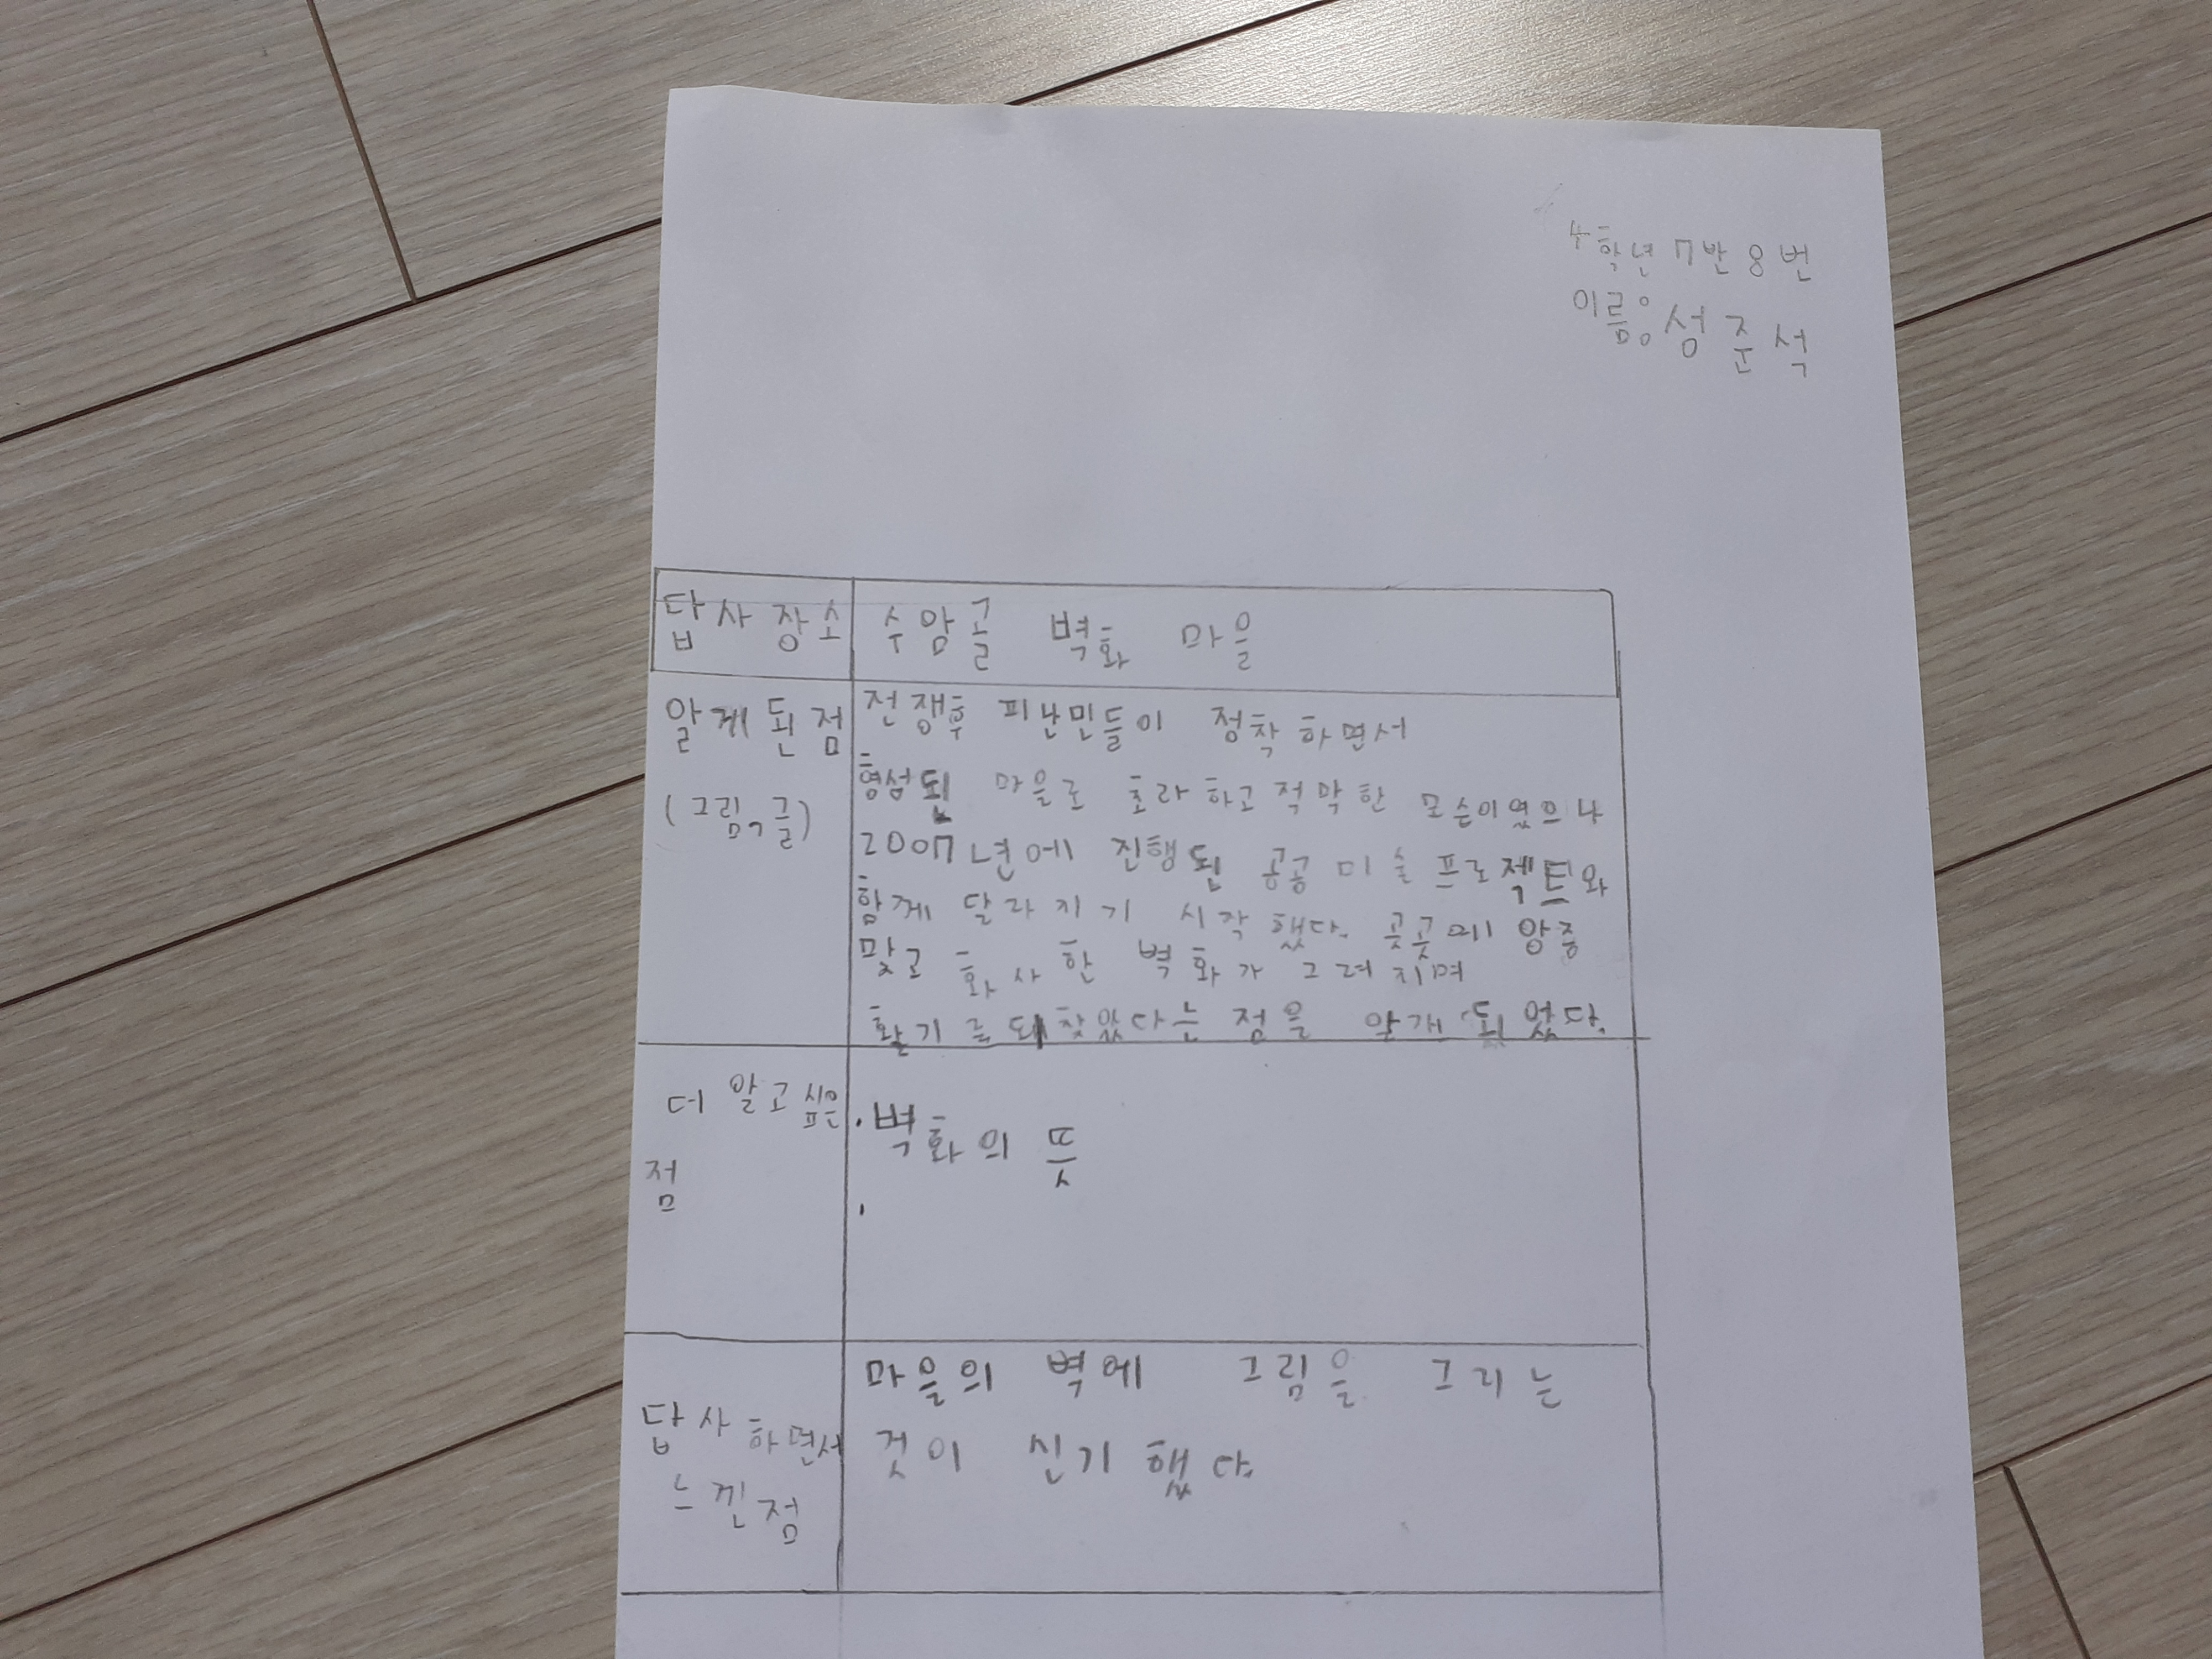 4학년 7반 8번
이름: 성준석
답사 장소 수암골 벽화 마을
알게된 점 전쟁후 피난민들이 정착 하면서
(그림, 글) 형섬된 마을로 초라하고 적막한 모슨이였으나
2007년에 진행된 공공 미술 프로젝트와
함께 달라지기 시작했다. 곳곳에 앙증
맞고 화사한 벽화가 그려지며
활기를 되찾았다는 점을 알개 되었다.
더 알고싶은 · 벽화의 뜻
점 ·
마을의 벽에 그림을 그리는
답사하면서 것이 신기했다.
느낀점